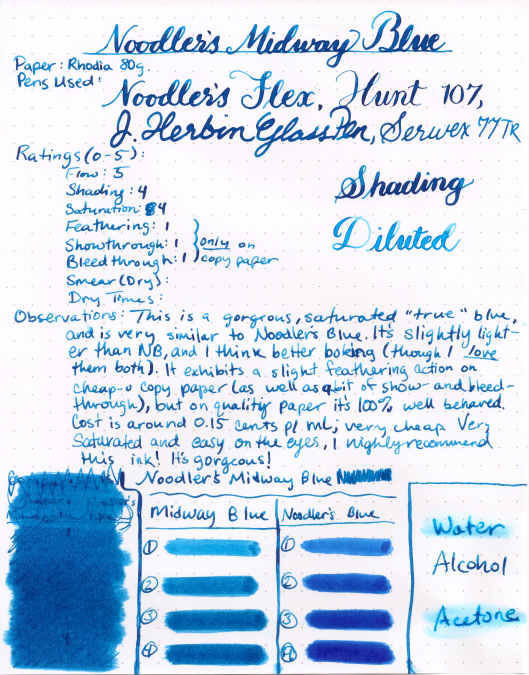 Noodler's Midway Blue
Paper: Rhodia 80g
Pens Used:
Noodler's Flex, Hunt 107,
J. Herbin Glass Pen, Serwex 77TR
Ratings (0-5):
Flow: 5
Shading: 4
Saturation: 4
Feathering: 1
Showthrough: 1
Bleedthrough: 1
only on
copy paper
Smear (Dry):
Dry Times:
Shading
Diluted
Observations: This is a gorgrous, saturated "true" blue,
and is very similar to Noodler's Blue. It's slightly light-
er than NB, and I think better looking (though I love
them both). It exhibits a slight feathering action on
cheap-o copy paper (as well as a bit of show- and bleed-
through), but on quality paper it's 100% well behaved.
Cost is around 0.15 cents p/ mL; very cheap. Very
Saturated and easy on the eyes, I highly recommend
this ink! It's gorgeous!
Noodler's Midway Blue
Midway Blue
Noodler's Blue
1
1
2
2
3
3
4
4
Water
Alcohol
Acetone